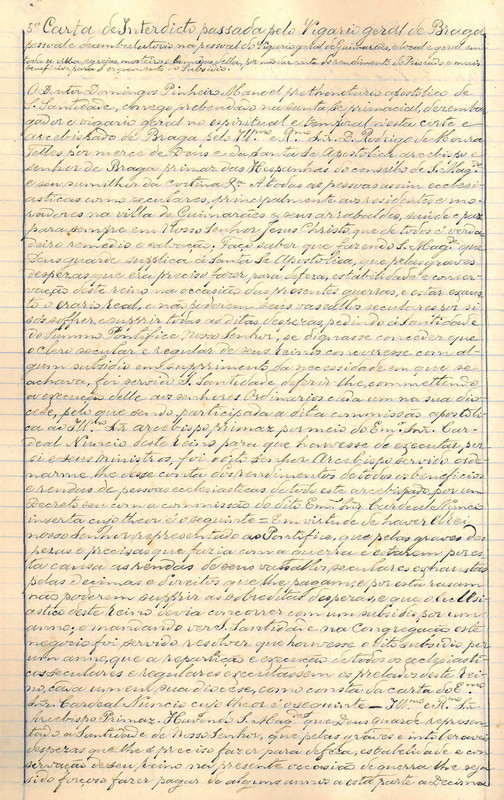 5ª Carta de Interdicto, passada pelo Vigario geral de Braga
pessoal e deambulatorio na pessoa do Vigario geral de Guimarães, e local e geral em
toda a villa, egrejas, mosteiros e bemfeitos della, por não dar conta do rendimento do Priorado e mais
beneficios para o orçamento do Subsidio.
O Doutor Domingos Pinheiro Manoel prothonotario apostolico de
S. Santidade, conego prebendado na santa sé primacial, desembar
gador e vigario geral no espiritual e temporal n'esta corte e
arcebispado de Braga pelo Ill.mo e R.mo Sr. D. Rodrigo de Moura
Telles por mercê de Deus e da santa Sé Apostolica arcebispo e
senhor de Braga primaz das Hespanhas do conselho de S. Mag.de
e seu sumilher da cortina &. A todas as pessoas assim ecclesi-
asticas como seculares, principalmente aos residentes e mo-
radores na villa de Guimarães e seus arrabaldes, saude e paz
para sempre em Nosso Senhor Jesus Christo, que de todos é verda
deiro remedio e salvação, Faço saber que fazendo S. Mag.de que
Deus guarde supplica á Santa Sé Apostolica, que pelas graves
despezas que era preciso fazer para defeza, estabilidade e conser-
vação deste reino na occasião das presentes guerras, e estar exaus-
to o erario real, e não poderem seus vassallos seculares por si
só soffrer, e supprir todas as ditas despezas, pedindo á Santidade
do Summo Pontifice, nosso Senhor, se dignasse conceder que
o clero secular e regular de seus Reinos concorresse com al-
gum subsidio em supprimento da necessidade em que se
achava, foi servido S. Santidade deferir-lhe, commettendo
a execução delle aos senhores Ordinarios cada um na sua dio-
cese, pelo que sendo participada a dita commissão apostoli
ca ao Ill.mo Sr. arcebispo primaz por meio do Em.mo Snr. Car-
deal Nuncio deste reino para que houvesse de executar por
si e seus ministros, foi o dito senhor Arcebispo servido orde-
narme lhe desse conta dos rendimentos de todos os beneficios
e rendas de pessoas ecclesiasticas de todo este arcebispado, por um
Decreto seu com a commissão do dito Em.mo Snr. Cardeal Nuncio
inserta cujo theor é o seguinte = Em virtude de haver El-rei
nosso senhor representado ao Pontifice, que pelas graves des
pezas e precisas que fazia com a guerra e estarem por es-
ta causa as rendas de seus vassallos, seculares exhaustas
pelas Decimas e direitos que lhe pagam, e por esta rasam
não poderem supprir as sobreditas despezas, e que o Ecclesi
astico deste Reino devia concorrer com um subsidio por um
anno, e mandando ver S. Santidade e na Congregação este
negocio foi servido resolver que houvesse o dito subsidio por
um anno, que a repartição e execução de todos os ecclesiasti-
cos seculares e regulares executassem os prelados deste Rei-
no, cada um em sua diocese, como consta da carta do E.mo
Snr. Cardeal Nuncio cujo theor é o seguinte = Ill.mo e R. Sr.
Arcebispo Primaz. Havendo S. Mag.de que Deus guarde represen-
tado a Santidade de Nosso Senhor, que pelas graves e intoleraveis
despezas que lhe é preciso fazer para defeza, estabilidade e con
servação de seu reino na presente occasião de guerra lhe seja
sido forçoso fazer pagar de alguns annos a esta parte a Decima